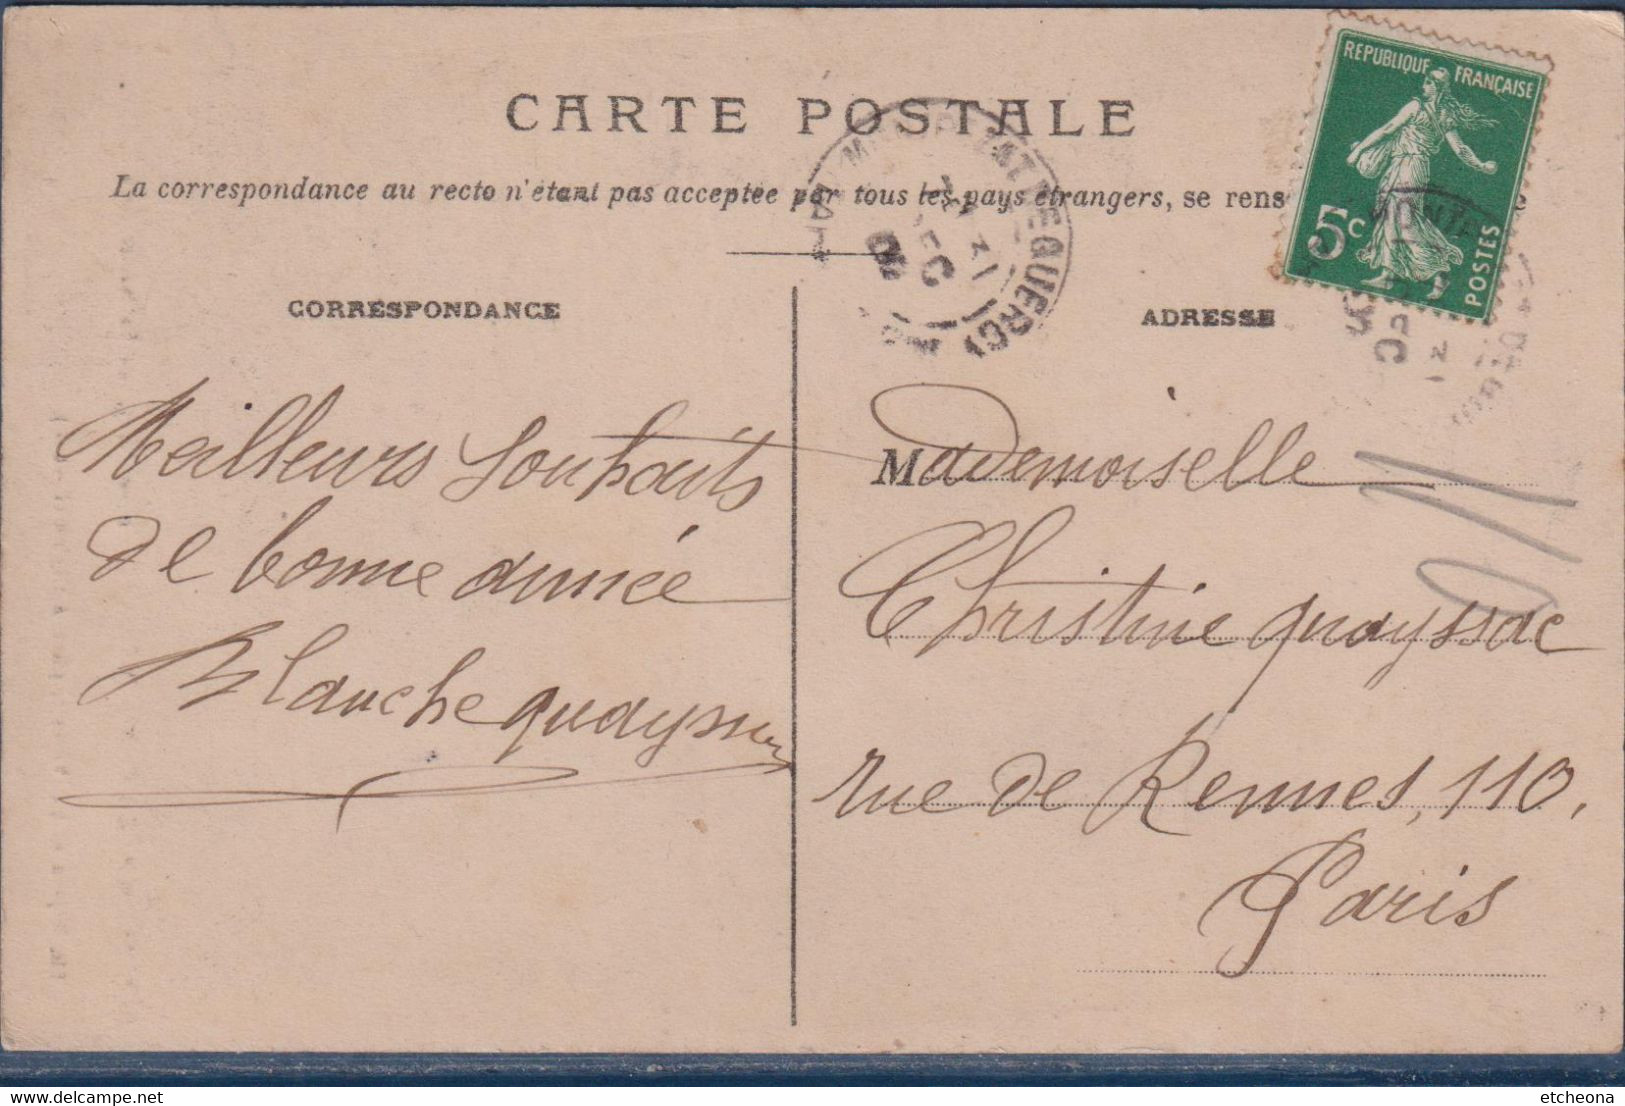 CARTE POSTALE
La correspondance au recto n'étant pas acceptée par tous les pays étrangers, se rens
REPUBLIQUE FRANÇAISE
5c
POSTES
CORRESPONDANCE
ADRESSE
Meilleurs Souhaits
de bonne année
Blanche quayssac
Mademoiselle
Christine quayssac
rue de Rennes, 110,
Paris
etcheona